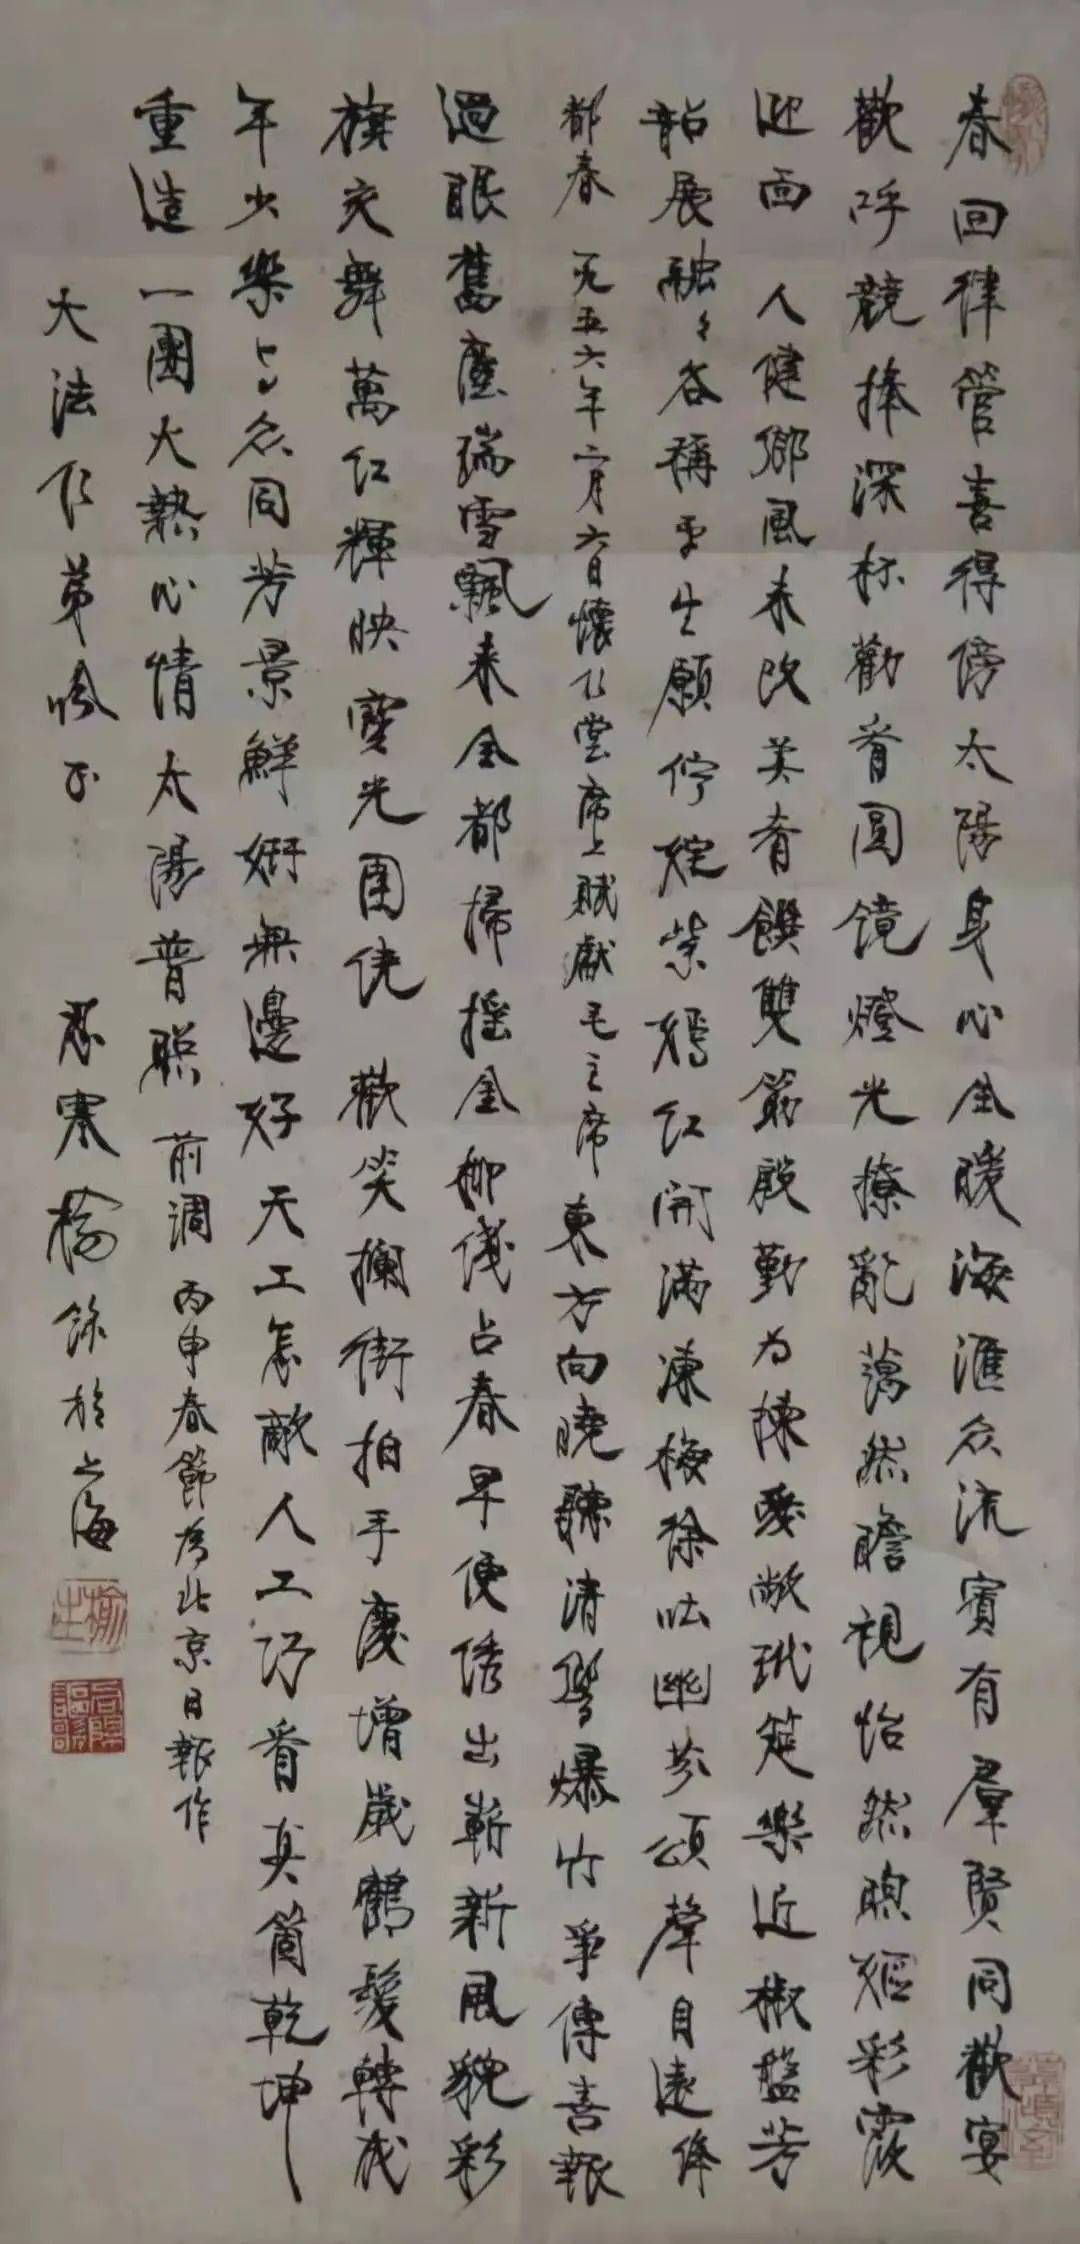 春回律管喜得傍太陽身心全暖海滙众流賓有羣賢同歡宴
歡呼競捧深杯勸看圓镜燈光撩亂藹然瞻視怡然煦嫗彩霞
迎面 人健鄉風未改美肴饌雙箸殷勤为揀愛敞玳筵樂近椒盤芳
韶展融々各稱平生願佇婉紫嫣红開滿凍梅徐吐幽芬頌聲自遠俸
都春 一九五六年二月六日懷仁堂席上賦獻毛主席 東方向曉聽清響爆竹爭傳喜報
過眼舊塵瑞雪飄来全都掃摇金柳线占春早便誘出嶄新風貌彩
旗交舞萬红輝映寶光團繞 歡笑攔街拍手慶增歲鶴髮轉成
年少樂与众同芳景鮮妍無邊好天工怎敵人工巧看真箇乾坤
重造一團火熱心情太陽普照 前調 丙申春節为北京日報作
大法仁弟吟正 忍寒 榆 於上海